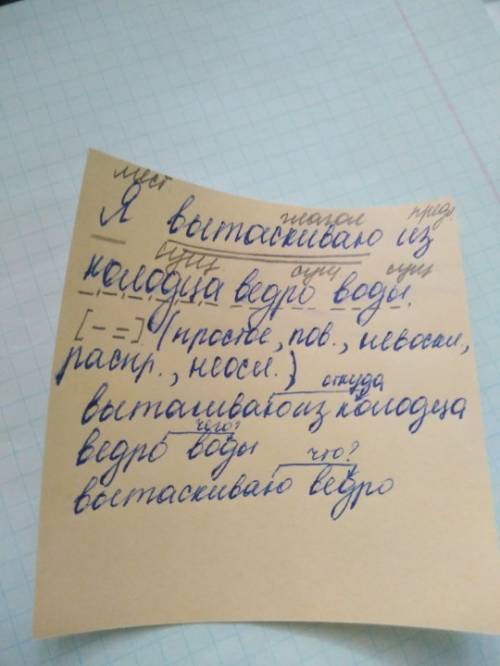 мест.
глагол пред
Я вытаскиваю из
сущ сущ сущ
колодца ведро воды.
[- =] (простое, пов., невоскл,
распр., неосл.)
откуда
вытаскиваю из колодца
чего?
ведро воды
что?
вытаскиваю ведро